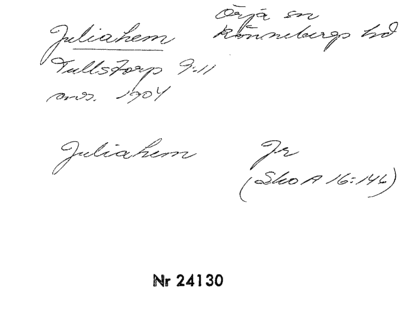 Juliahem
Örja sn
Rönnebergs hd
Tullstorp 9:11
avs. 1904
Juliahem
Jr
(Sko A 16:146)
Nr 24130